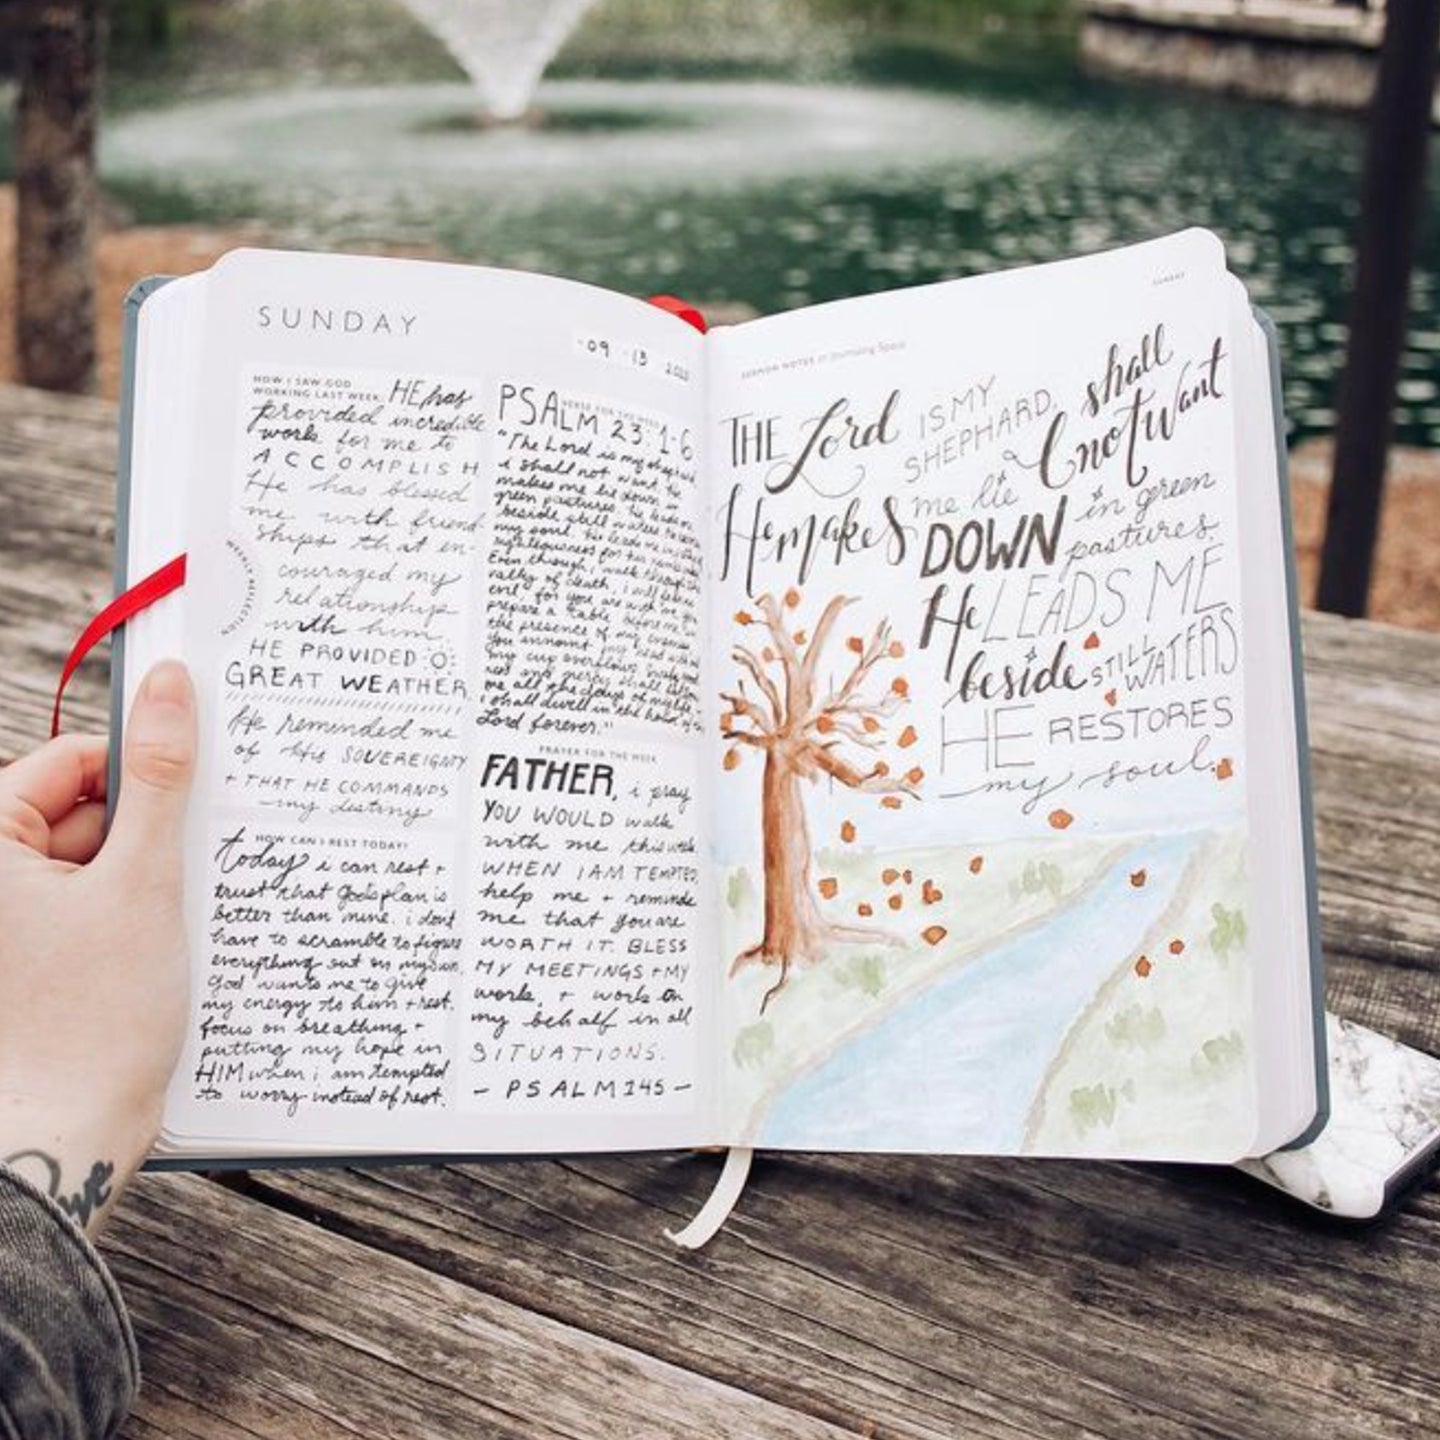 SUNDAY
09 13 2020
HOW I SAW GOD
WORKING LAST WEEK: HE has
provided incredible
works for me to
ACCOMPLISH
He has blessed
me with friend-
ships that en-
couraged my
relationship
with him.
HE PROVIDED
GREAT WEATHER
He reminded me
of His SOVEREIGNTY
+ THAT HE COMMANDS
my destiny
WEEKLY REFLECTION
HOW CAN I REST TODAY?
today i can rest +
trust that God's plan is
better than mine. i dont
have to scramble to figure
everything out on my own.
God wants me to give
my energy to him + rest.
focus on breathing +
putting my hope in
HIM when i am tempted
to worry instead of rest.
VERSE FOR THE WEEK
PSALM 23:1-6
"The Lord is my shepherd
i shall not want. he
makes me lie down in
green pastures. he leads me
beside still waters. he restores
my soul. he leads me in
righteousness for his names
Even though i walk through the
valley of death, i will fear no
evil, for you are with me. you
prepare a table before me in
the presence of my enemies
you annoint my head with oil
my cup overflows.
and mercy shall follow
me all the days of my life +
i shall dwell in the house of the
Lord forever."
PRAYER FOR THE WEEK
FATHER, i pray
YOU WOULD walk
with me this week
WHEN I AM TEMPTED,
help me + reminde
me that you are
WORTH IT. BLESS
MY MEETINGS + MY
work, + work on
my behalf in all
SITUATIONS.
- PSALM 145 -
SUNDAY
SERMON NOTES or Journaling Space
THE Lord IS MY
SHEPHARD, I shall
not want
He makes me lie
DOWN in green
pastures.
He LEADS ME
beside STILL WATERS
HE RESTORES
my soul.